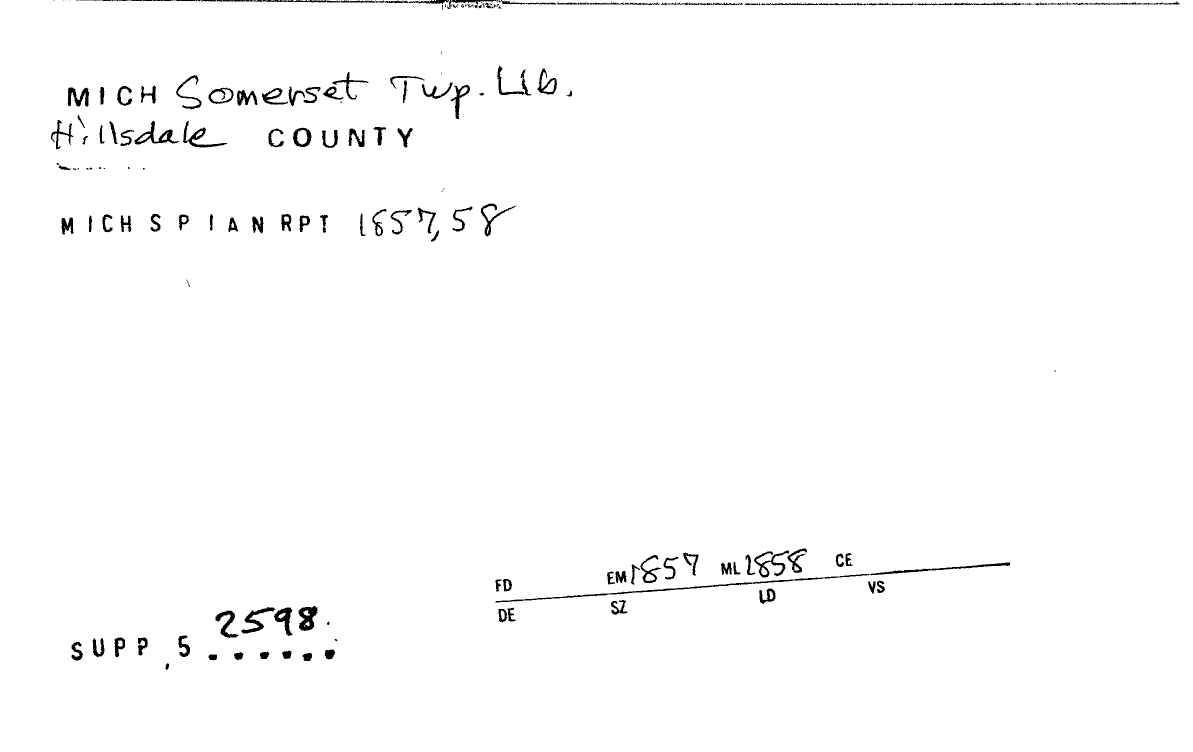 MICH Somerset Twp. Lib.
Hillsdale COUNTY
MICH S P I A N RPT 1857,58
FD EM 1857 ML 1858 CE
DE SZ LD VS
2598.
SUPP,5 ......